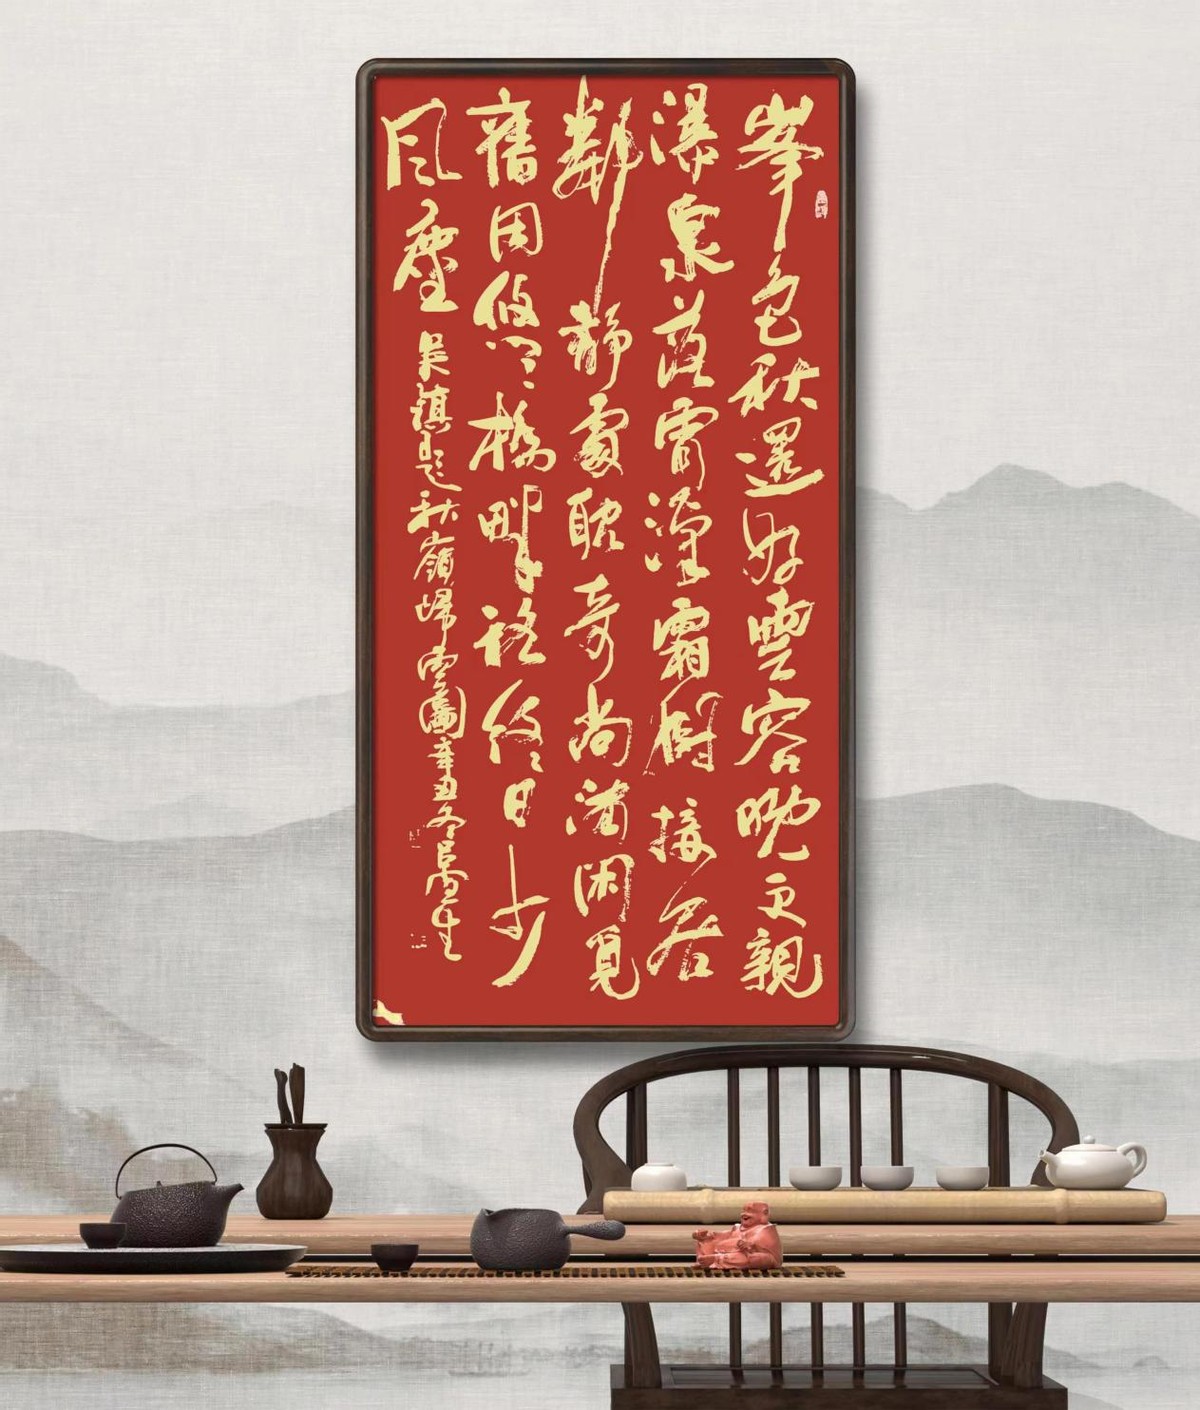 峯色秋還好雲容晚更親
瀑泉落霄漢霜樹接居
鄰靜處耽奇尚清閑覓
舊因悠悠橋畔路終日少
風塵 吳鎮題秋嶺歸雲圖辛丑冬